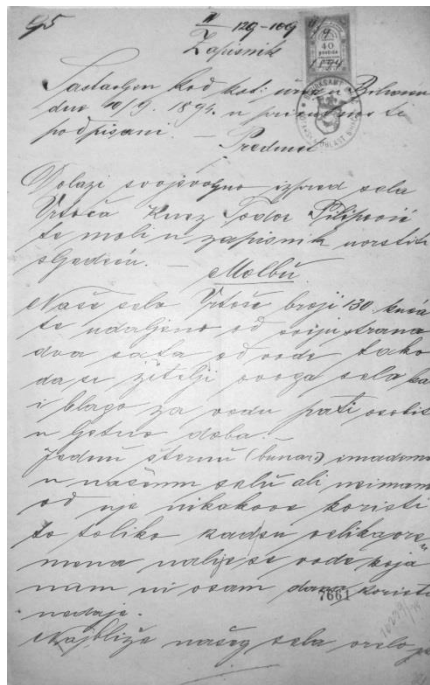 95
129-109
Zapisnik
40
1894
Sastavljen kod kot. ureda
dne 10/9. 1894. u prisutnosti
podpisani. — Predmet
Dolazi svojevoljno izpred sela
Vrtoča Knez Todor Filipović
te moli u zapisnik uvrstiti
sljedeću. —
Molbu
Naše selo Vrtoče broji 130 kuća
te udaljeno od sviju strana
dva sata od vode tako
da se žitelji ovoga sela ka
i blago za vodu pati osobit
u ljetno doba. —
Jednu šternu (bunar) imademo
u našem selu ali neimam
od nje nikakove koristi
jer toliko kadsu velika vre„
mena nalije se vode koja
nam ni osam dana koristi
7661
nedaje.
Najbliže našeg sela